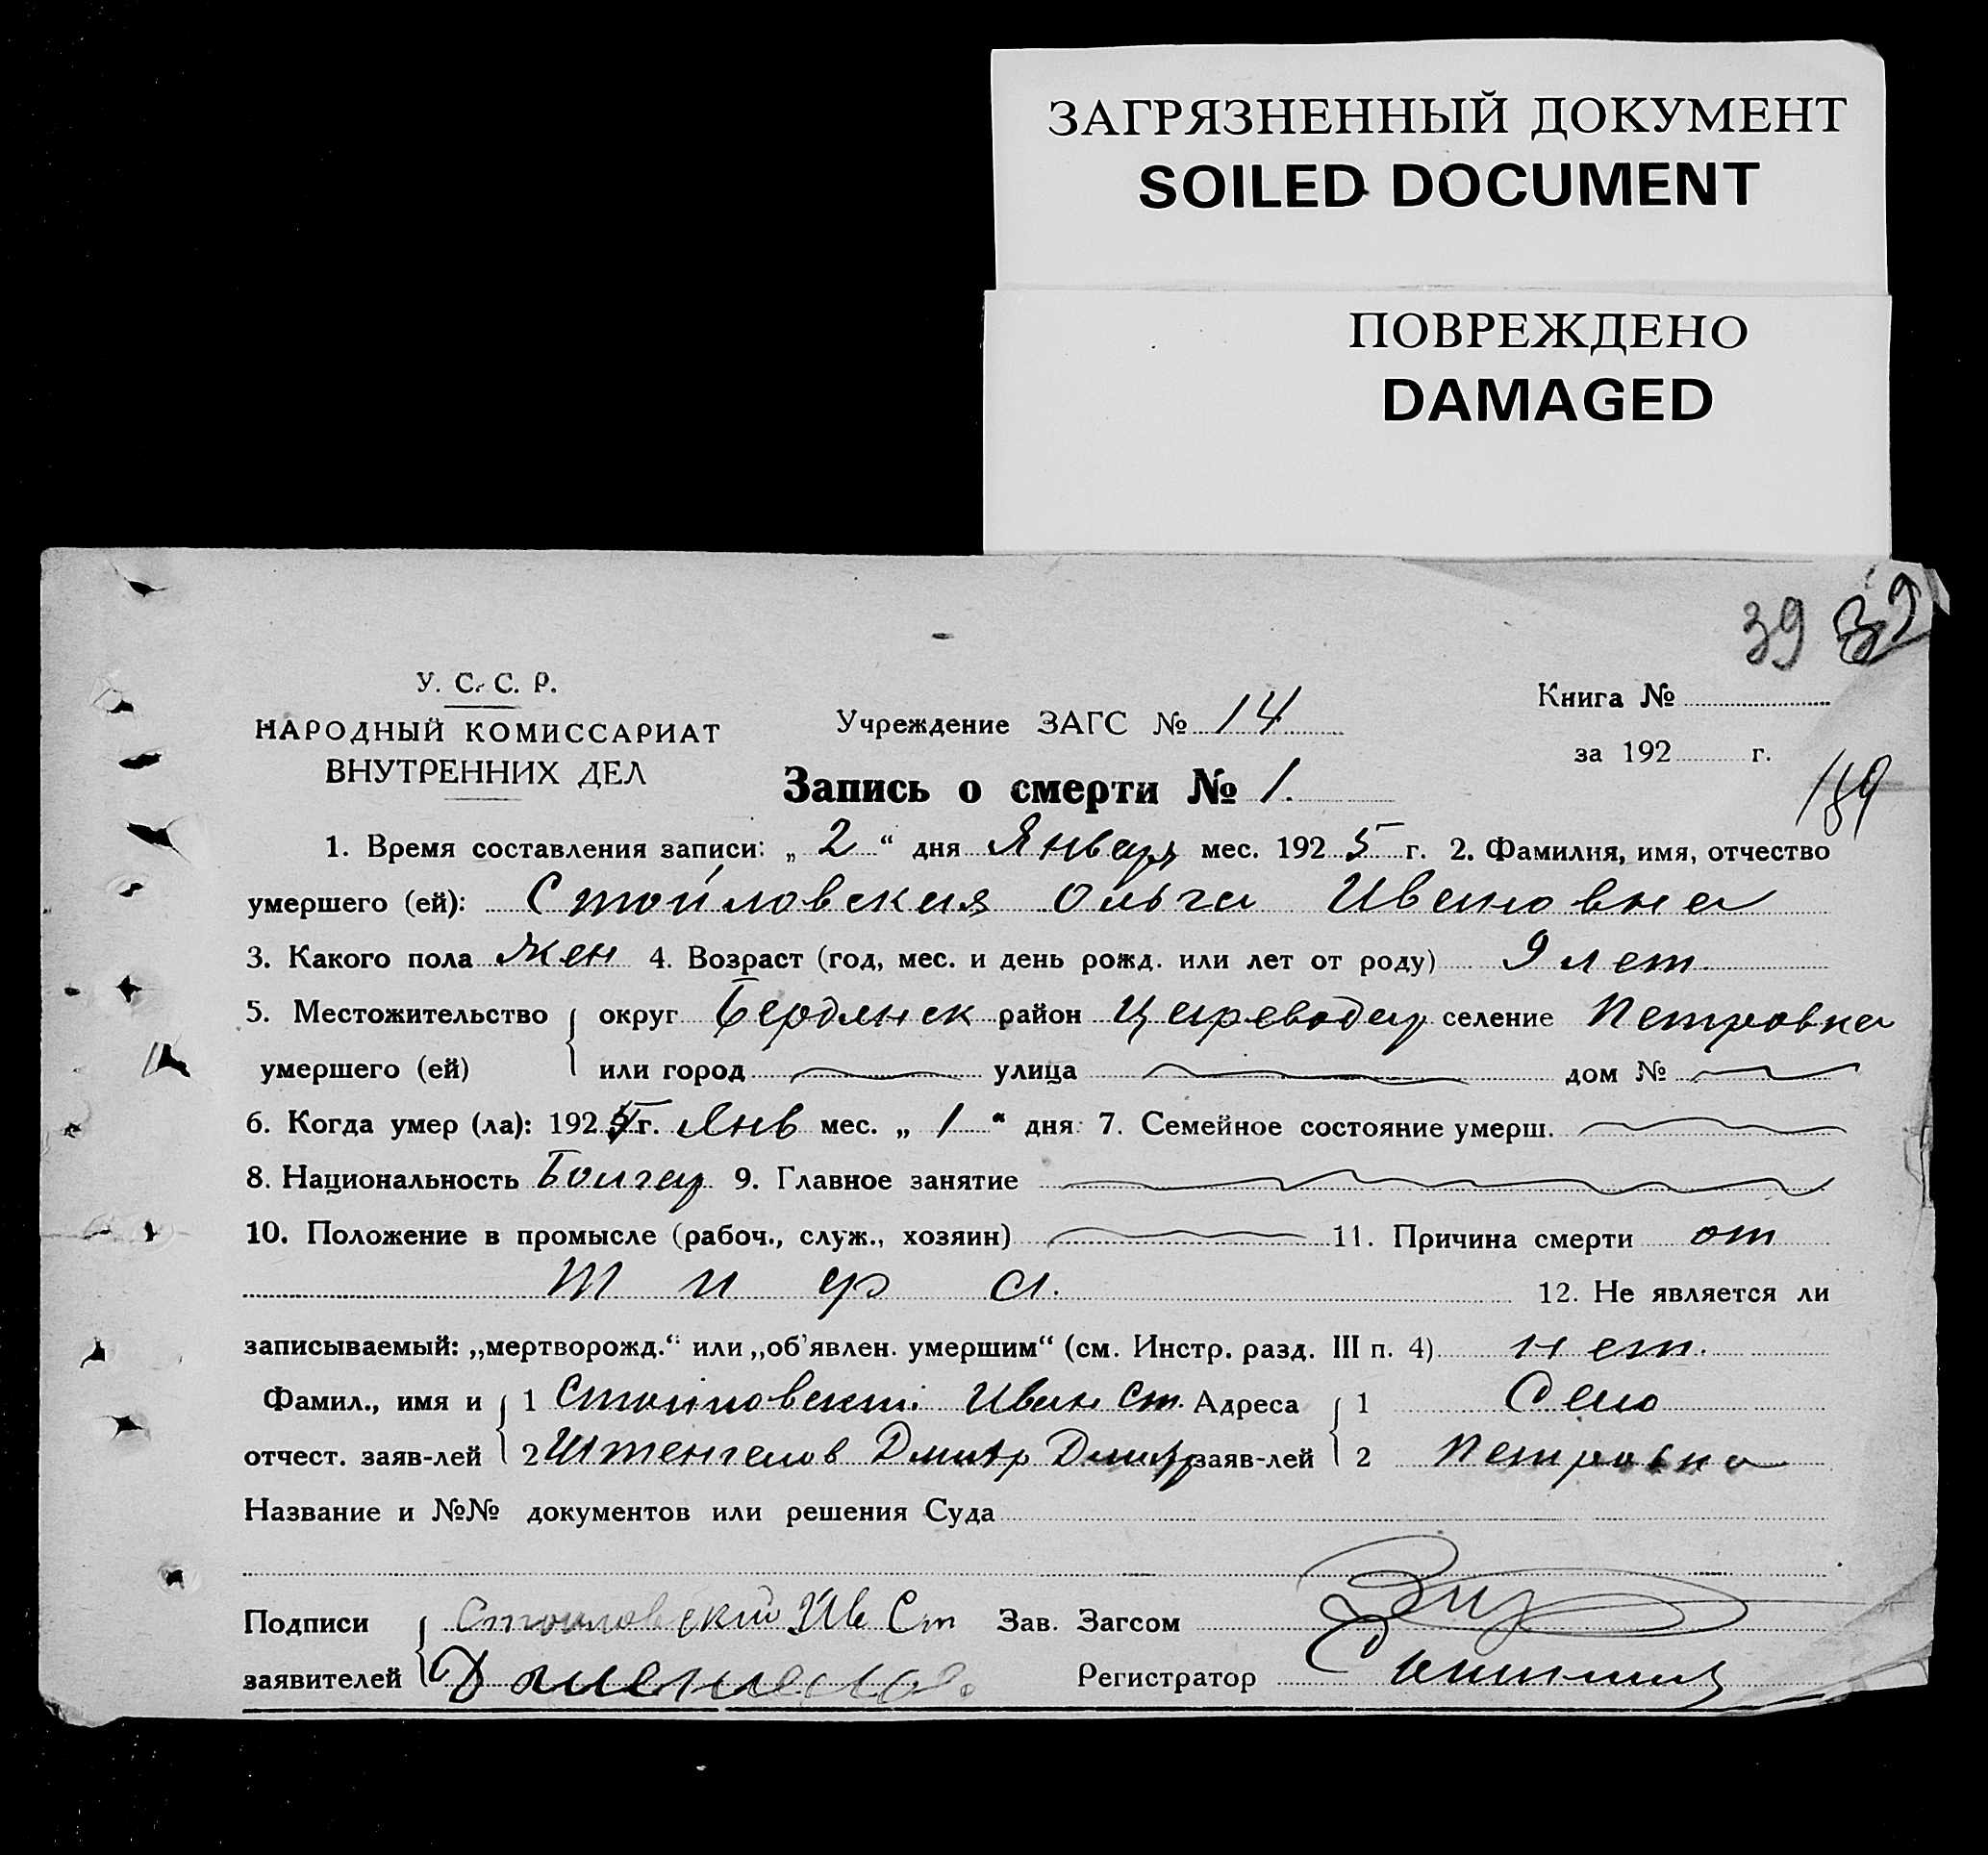 ЗАГРЯЗНЕННЫЙ ДОКУМЕНТ
SOILED DOCUMENT
ПОВРЕЖДЕНО
DAMAGED
39 32
У. С. С. Р.
НАРОДНЫЙ КОМИССАРИАТ
ВНУТРЕННИХ ДЕЛ
Учреждение ЗАГС № 14
Запись о смерти № 1.
Книга №
за 192 г.
189
1. Время составления записи: „ 2 “ дня Январь мес. 192 5 г. 2. Фамилия, имя, отчество
умершего (ей): Стойловская Ольга Ивановна
3. Какого пола жен 4. Возраст (год, мес. и день рожд. или лет от роду) 9 лет
5. Местожительство { округ Бердянск район Цареводар селение Петровка
умершего (ей) или город улица дом №
6. Когда умер (ла): 192 5 г. Янв мес. „ 1 “ дня 7. Семейное состояние умерш.
8. Национальность Болгар 9. Главное занятие
10. Положение в промысле (рабоч., служ., хозяин) 11. Причина смерти от
тифа.
12. Не является ли
записываемый: „мертворожд.“ или „об'явлен. умершим“ (см. Инстр. разд. III п. 4) нет.
Фамил., имя и { 1 Стойловский Иван Ст. Адреса { 1 Село
отчест. заяв-лей 2 Штенгелов Дмитр Дмитр заяв-лей 2 Петровка
Название и №№ документов или решения Суда
Подписи { Стоиловский Ив Ст Зав. Загсом
заявителей Регистратор